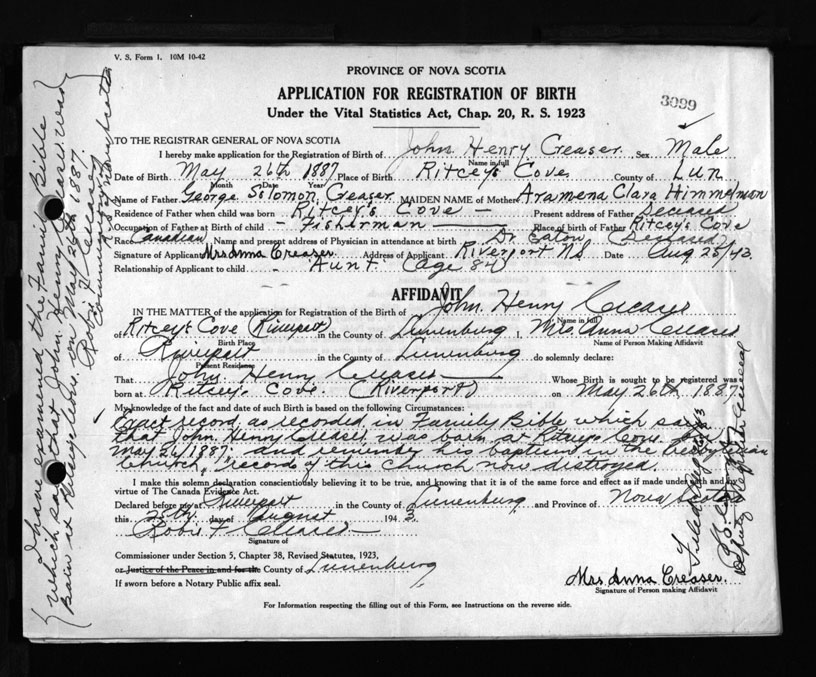 V. S. Form 1. 10M 10-42
PROVINCE OF NOVA SCOTIA
APPLICATION FOR REGISTRATION OF BIRTH
Under the Vital Statistics Act, Chap. 20, R. S. 1923
3099
TO THE REGISTRAR GENERAL OF NOVA SCOTIA
I hereby make application for the Registration of Birth of John Henry Creaser Sex Male
Name in full
Date of Birth May 26th 1887 Place of Birth Ritcey's Cove County of Lun
Month Date Year
Name of Father George Solomon Creaser MAIDEN NAME of Mother Aramena Clara Himmelman
Residence of Father when child was born Ritcey's Cove - Present address of Father Deceased
Occupation of Father at Birth of child - Fisherman Place of birth of Father Ritcey's Cove
Race Canadian Name and present address of Physician in attendance at birth Dr Eaton (Deceased)
Signature of Applicant Mrs Anna Creaser Address of Applicant Riverport N.S. Date Aug 25/43.
Relationship of Applicant to child - Aunt (age 84)
AFFIDAVIT
IN THE MATTER of the application for Registration of the Birth of John Henry Creaser
Name in full
of Ritcey's Cove (Riverport) in the County of Lunenburg I, Mrs. Anna Creaser
Birth Place Name of Person Making Affidavit
of Riverport in the County of Lunenburg do solemnly declare:
Present Residence
That John Henry Creaser Whose Birth is sought to be registered was
born at Ritcey's Cove (Riverport) on May 26th 1887.
My knowledge of the fact and date of such Birth is based on the following Circumstances:
Exact record, as recorded in Family Bible which says
that John Henry Creaser, was born at Ritcey's Cove
May 26/1887; and remember his baptism in the Presbyterian
Church, records of this Church now distroyed.
I make this solemn declaration conscientiously believing it to be true, and knowing that it is of the same force and effect as if made under oath and by
virtue of The Canada Evidence Act.
Declared before me at Riverport in the County of Lunenburg and Province of Nova Scotia
this 25th day of August 1943.
Robie F Creaser
Signature of
Commissioner under Section 5, Chapter 38, Revised Statutes, 1923,
or Justice of the Peace in and for the County of Lunenburg
If sworn before a Notary Public affix seal.
Mrs. Anna Creaser.
Signature of Person making Affidavit
For Information respecting the filling out of this Form, see Instructions on the reverse side.
I have examined the Family Bible
which says that John Henry Creaser was
born at Ritcey's Cove, on May 26th 1887.
Robie F Creaser
Deputy Registrar General